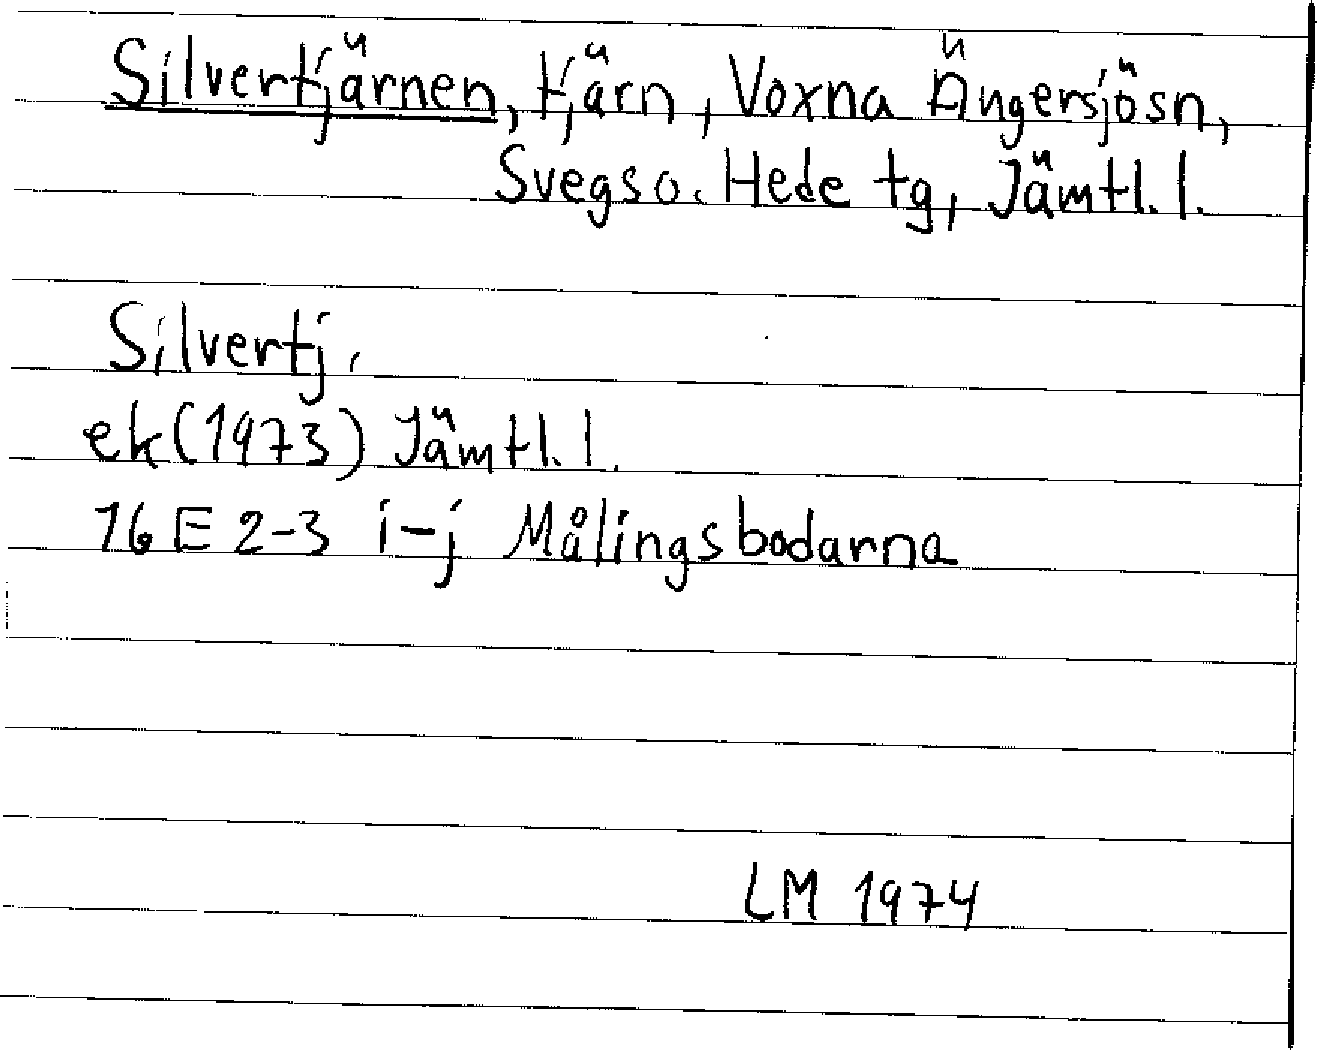 Silvertjärnen, tjärn, Voxna Ängersjösn,
Svegs o. Hede tg, Jämtl. l.
Silvertj.
ek (1973) Jämtl. l.
16 E 2-3 i-j Målingsbodarna
LM 1974